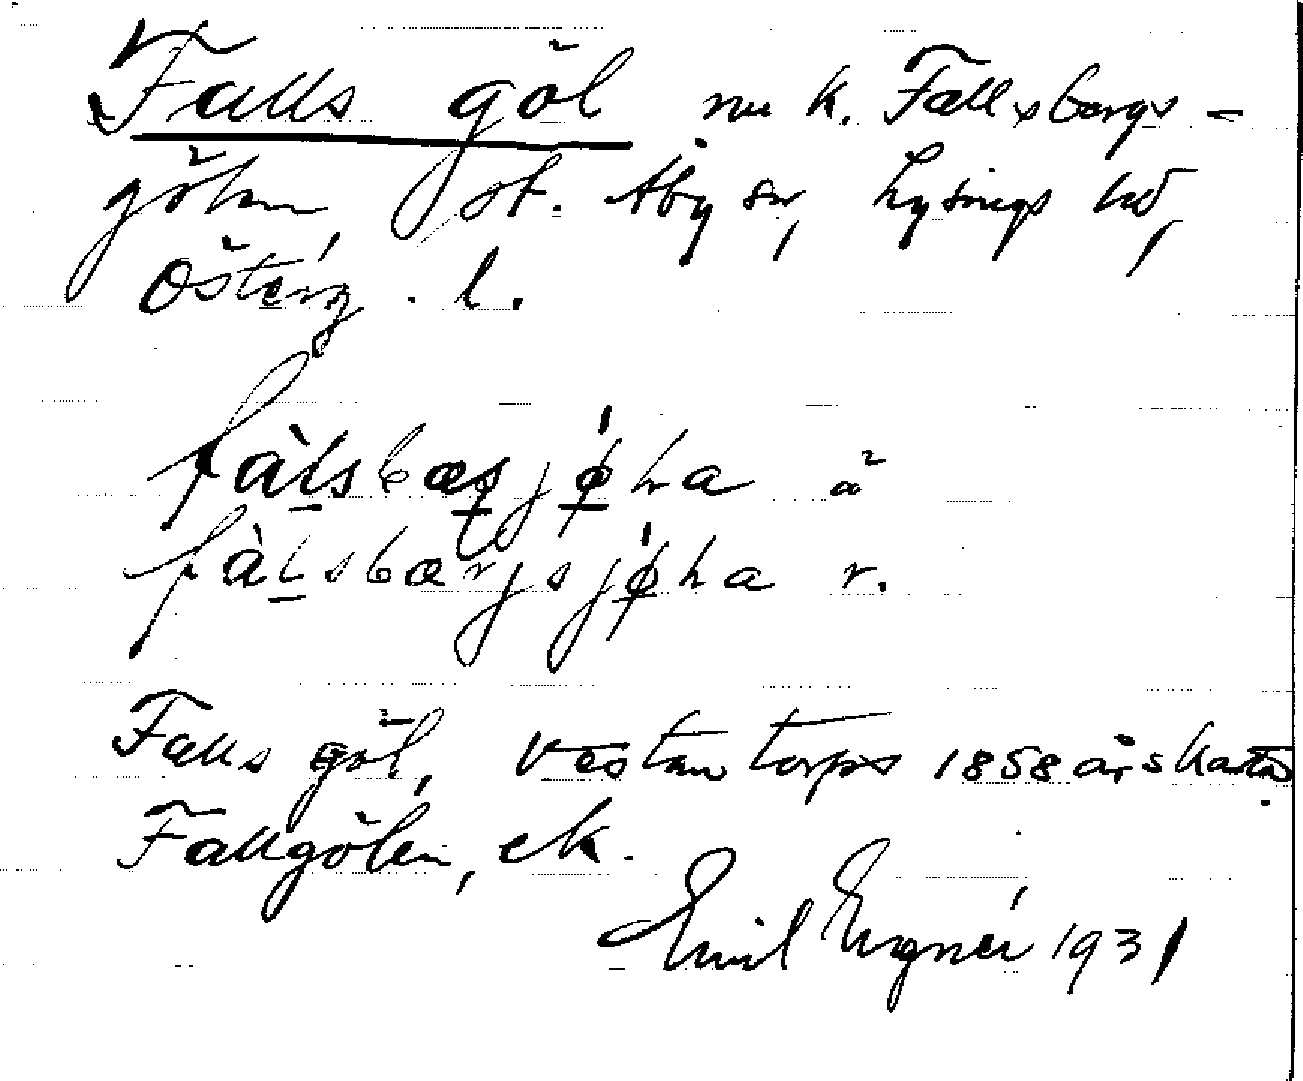 Falls göl nu k. Fallsbergs-
gölen, st. Åby sn, Lysings hd,
Österg. l.
fàlsbæsjøha o
fàlsbærjsjøha r.
Falls göl, Vestantorps 1858 års karta.
Fallgölen, ek.
Emil Engnér 1931